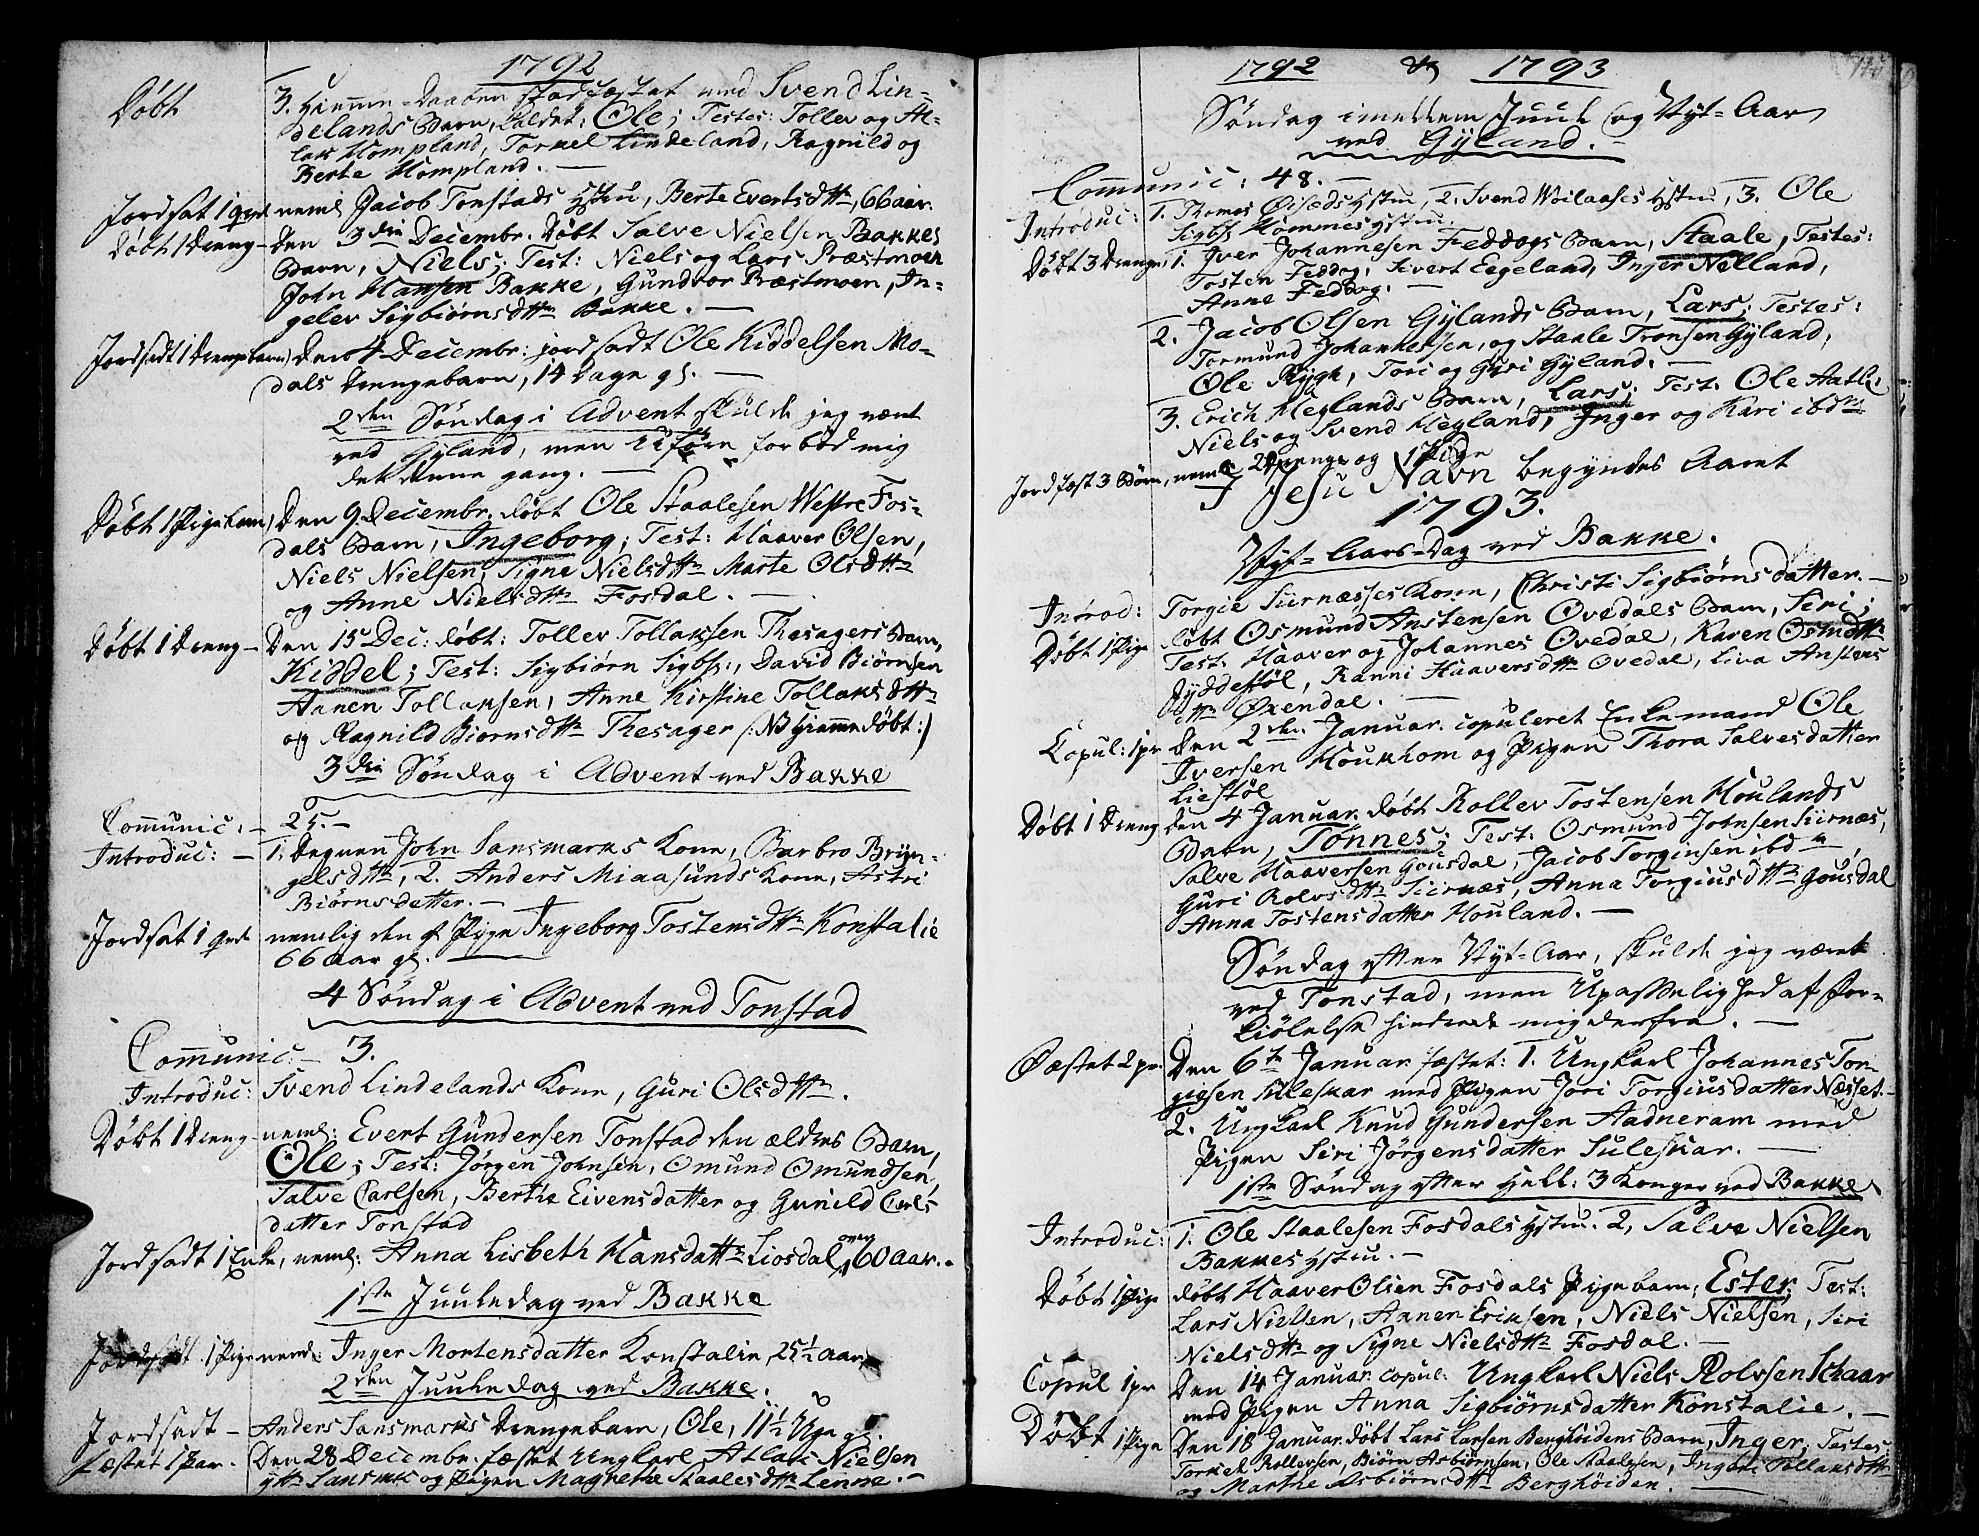 1792
Døbt
3. Hiemme-Daaben stadfæstet med Svend Lin-
delands Barn, kaldet: Ole; Testes: Tollev og At-
lak Hompland, Torkel Lindeland, Ragnild og
Berte Hompland. —
Jordsat 1 neml Jacob Tonstads Hstru, Berte Evertsdttr, 66 aar.
Døbt 1 Dreng — Den 3die Decembr. døbt Salve Nielsen Bakkes
Barn, Niels; Test: Niels og Lars Præstmoen
John Hansen Bakke, Gundvor Præstmoen, In-
gelev Sigbiørnsdttr Bakke. —
Jordsadt 1 Drengebarn, Den 4 Decembr: jordsadt Ole Kiddelsen Mo-
dals Drengebarn, 14 Dage gl. —
2den Søndag i Advent skulde jeg været
ved Gyland, men Uføre forbød mig
det denne gang. —
Døbt 1 Pigebarn, Den 9 Decembr. døbt Ole Staalesen Westre Fos-
dals Barn, Ingeborg; Test: Haaver Olsen,
Niels Nielsen, Signe Nielsdttr Marte Olsdttr
og Anne Nielsdttr Fosdal. —
Døbt 1 Dreng — Den 15 Dec: døbt: Tollev Tollaksen Thesagers Barn,
Kiddel; Test: Sigbiørn Sigbs:, David Biørnsen
Aanen Tollaksen, Anne Kirstine Tollaksdttr
og Ragnild Biørnsdttr Thesager (: NB Hiemmedøbt :)
3die Søndag i Advent ved Bakke
Communic: — 25. —
Introduc: — 1. Degnen John Sansmarks Kone, Barbro Bryn-
gelsdttr, 2. Anders Miaasunds Kone, Astri
Biørnsdatter. —
Jordsat 1 nemlig den gl Pige Ingeborg Tostensdttr Konstalie
66 Aar gl. —
4 Søndag i Advent ved Tonstad
Communic: — 3.
Introduc: Svend Lindelands Kone, Guri Olsdttr.
Døbt 1 Dreng — neml: Evert Gundersen Tonstad den ældres Barn,
Ole; Test: Jørgen Johnsen, Omund Omundsen,
Salve Carlsen, Berthe Eivensdatter og Gunild Carls-
datter Tonstad
Jordsadt 1 Enke, neml: Anna Lisbeth Hansdattr Liosdal, over 60 Aar..
1ste Juuledag ved Bakke
Jordsadt 1 Pige neml: Inger Mortensdatter Konstalie, 25½ Aar
2den Juuledag ved Bakke.
Jordsadt — Anders Sansmarks Drengebarn, Ole, 11½ Uge gl.
fæstet 1 Par. Den 28 Decembr. fæstet Ungkarl Atlak Nielsen
Sansmk og Pigen Magrethe Staalesdttr Lenne. —
1792 & 1793
Søndag imellem Juul og Nyt-Aar
ved Gyland. —
Communic: 48. —
Introduc: 1. Thomas Øisæds Hstru, 2. Svend Woilaases Hstru, 3. Ole
Sigbs Hommes Hstru.
Døbt 3 Drenge, 1. Iver Johannesen Feddogs Barn, Staale, Testes:
Tosten Feddog, Sivert Eegeland, Inger Nelland,
Anne Feddog. —
2. Jacob Olsen Gylands Barn, Lars; Testes:
Tormund Johannesen, og Staale Tronsen Gyland,
Ole Rygh, Tori og Guri Gyland. —
3. Erich Heglands Barn, Lars; Test. Ole Aatle,
Niels og Svend Hegland, Inger og Kari ibdm
Jordfæst 3 Børn, neml 2 Drenge og 1 Pige
I Jesu Navn begyndes Aaret
1793.
Nyt-Aars-Dag ved Bakke.
Introd: Torgie Siirnæsses Kone, Christi Sigbiørnsdatter. —
Døbt 1 Pige døbt Osmund Anstensen Øvedals Barn, Siri;
Test. Haaver og Johannes Øvedal, Karen Osmdttr
Jyddestøl, Ranni Haaversdttr Øvedal, Liva Anstens
dttr Øxendal. —
Copul: 1 pr Den 2den Januar. copuleret Enkemand Ole
Iversen Houkhom og Pigen Thora Salvesdatter
Liestøl
Døbt 1 Dreng Den 4 Januar. døbt Rollev Tostensen Houlands
Barn, Tønnes; Test: Osmund Johnsen Siirnæs,
Salve Haaversen Gousdal, Jacob Torginsen ibdm,
Guri Rolvsdttr Siirnæs, Anna Torgiusdttr Gousdal
Anna Tostensdatter Houland. —
Søndag efter Nyt-Aar, skulde jeg været
ved Tonstad, men Upasselighed af For-
kiølelse hindrede mig derfra. —
Fæstet 2 pr. Den 6te Januar fæstet: 1. Ungkarl Johannes Tor-
giesen Suleskar med Pigen Jori Torgiusdatter Næsset. —
2. Ungkarl Knud Gundersen Aadneram med
Pigen Siri Jørgensdatter Suleskar. —
1ste Søndag efter Hell: 3 Konger ved Bakke
Introduc: 1. Ole Staalesen Fosdals Hstru. 2, Salve Nielsen
Bakkes Hstru. —
Døbt 1 Pige døbt Haaver Olsen Fosdals Pigebarn; Ester; Test:
Lars Nielsen, Aanen Eriksen, Niels Nielsen, Siri
Nielsdttr og Signe Nielsdttr Fosdal. —
Copul 1 pr Den 14 Januar copul: Ungkarl Niels Rolvsen Schaar
med Pigen Anna Sigbiørnsdatter Konstalie. —
Døbt 1 Pige Den 18 Januar. døbt Lars Larsen Berghøidens Barn, Inger; Testes:
Torkel Rollevsen, Biørn Asbiørnsen, Ole Staalesen, Ingbor Tollaksdttr
og Marthe Asbiørnsdttr Berghøiden. —